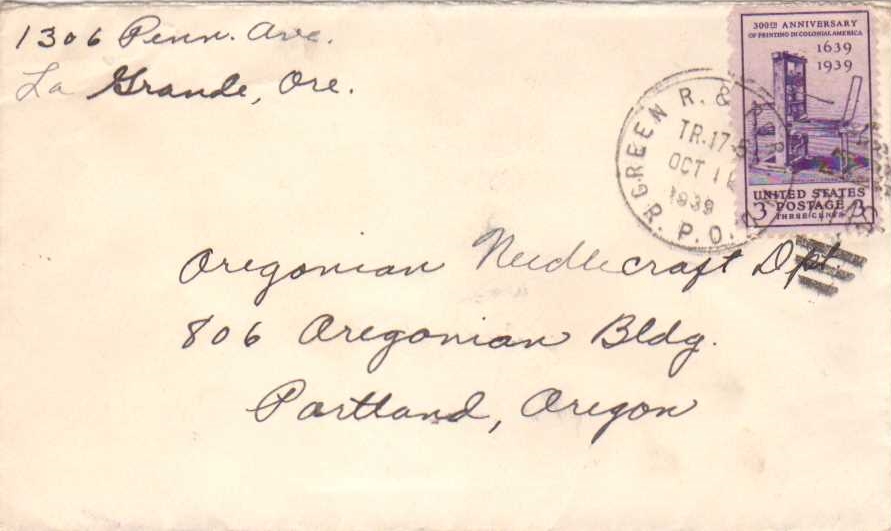 1306 Penn. Ave.
La Grande, Ore.
300TH ANNIVERSARY
OF PRINTING IN COLONIAL AMERICA
1639
1939
UNITED STATES
3 POSTAGE 3
THREE CENTS
GREEN R. &
TR.17
OCT
1939
R. P. O.
Oregonian Needlecraft Dpt.
806 Oregonian Bldg.
Portland, Oregon